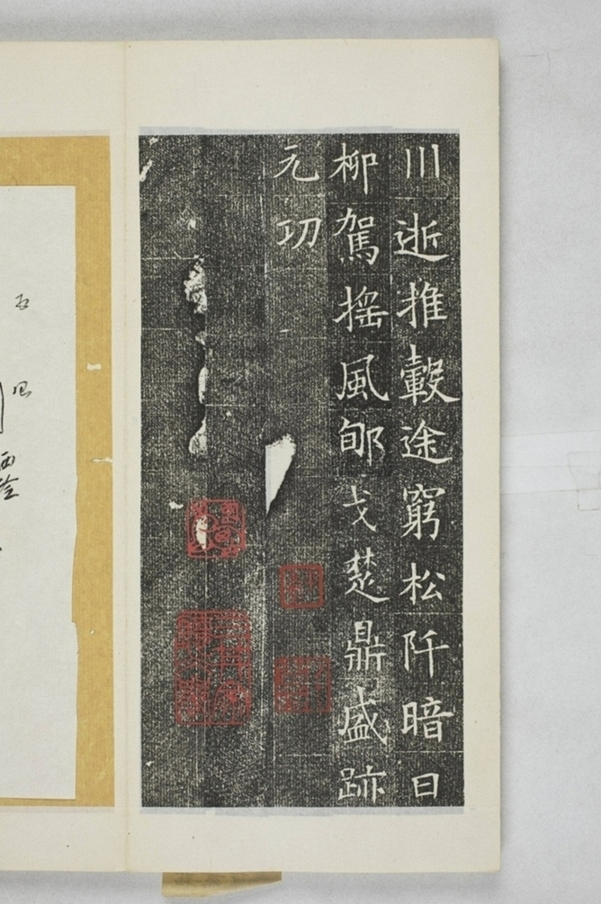 川逝推轂途窮松阡暗日
柳駕搖風郇戈楚鼎盛跡
元功